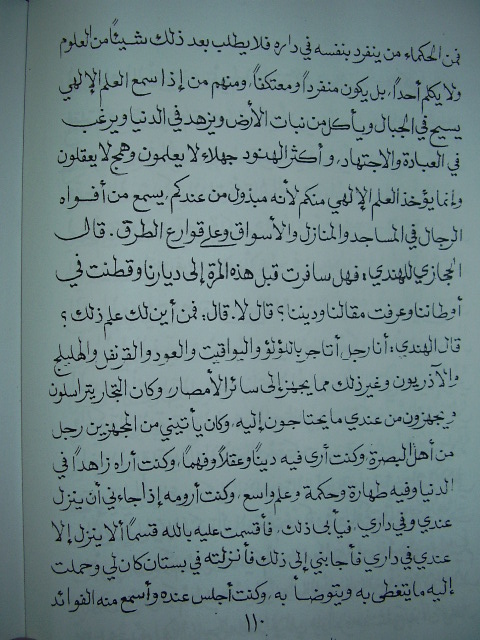 فمن الحكماء من ينفرد بنفسه في داره فلا يطلب بعد ذلك شيئاً من العلوم
ولا يكلم أحداً، بل يكون منفرداً ومعتكفاً، ومنهم من إذا سمع العلم الإلهي
يسيح في الجبال ويأكل من نبات الأرض ويزهد في الدنيا ويرغب
في العبادة والاجتهاد، وأكثر الهنود جهلاء لا يعلمون وهمج لا يعقلون
وإنما يؤخذ العلم الإلهي منكم لأنه مبذول من عندكم، يسمع من أفواه
الرجال في المساجد والمنازل والأسواق وعلى قوارع الطرق. قال
الحجازي للهندي: فهل سافرت قبل هذه المرة إلى ديارنا وقطنت في
أوطاننا وعرفت مقالنا وديننا؟ قال لا. قال: فمن أين لك علم ذلك؟
قال الهندي: أنا رجل أتاجر باللؤلؤ واليواقيت والعود والقرنفل والهليلج
والآذريون وغير ذلك مما يجهز إلى سائر الأمصار، وكان التجار يتراسلون
ويجهزون من عندي ما يحتاجون إليه، وكان يأتيني من المجهزين رجل
من أهل البصرة، وكنت أرى فيه ديناً وعقلاً وفهماً، وكنت أراه زاهداً في
الدنيا وفيه طهارة وحكمة وعلم واسع، وكنت أرومه إذا جاءني أن ينزل
عندي وفي داري، فيأبى ذلك، فأقسمت عليه بالله قسماً ألا ينزل إلا
عندي في داري فأجابني إلى ذلك فأنزلته في بستان كان لي وحملت
إليه ما يتغطى به ويتوضأ به، وكنت أجلس عنده وأسمع منه الفوائد
١١٠